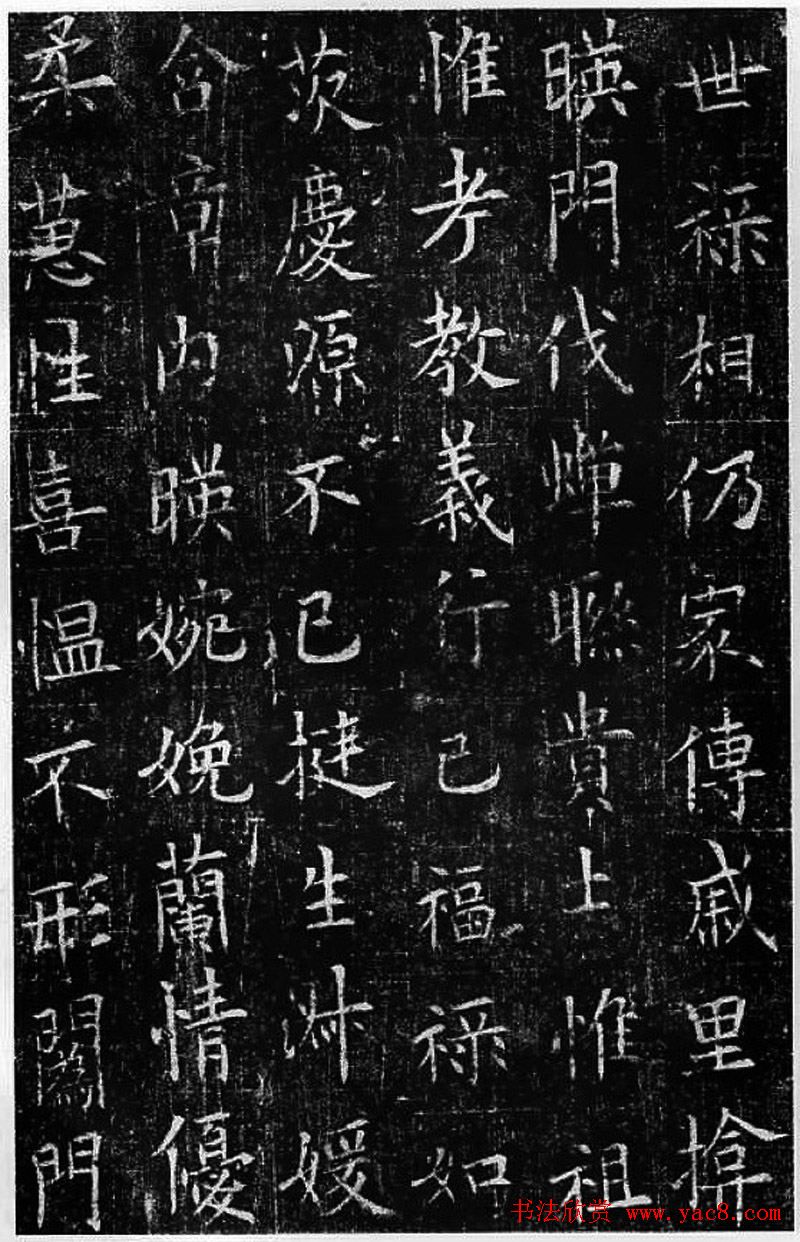 世祿相仍家傳戚里揜
暎門伐蟬聮貴上惟祖
惟考教義行己福祿如
茨慶源不已挺生淋媛
含章内暎婉娩蘭情優
柔蕙性喜愠不形闟門
书法欣赏 www.yac8.com